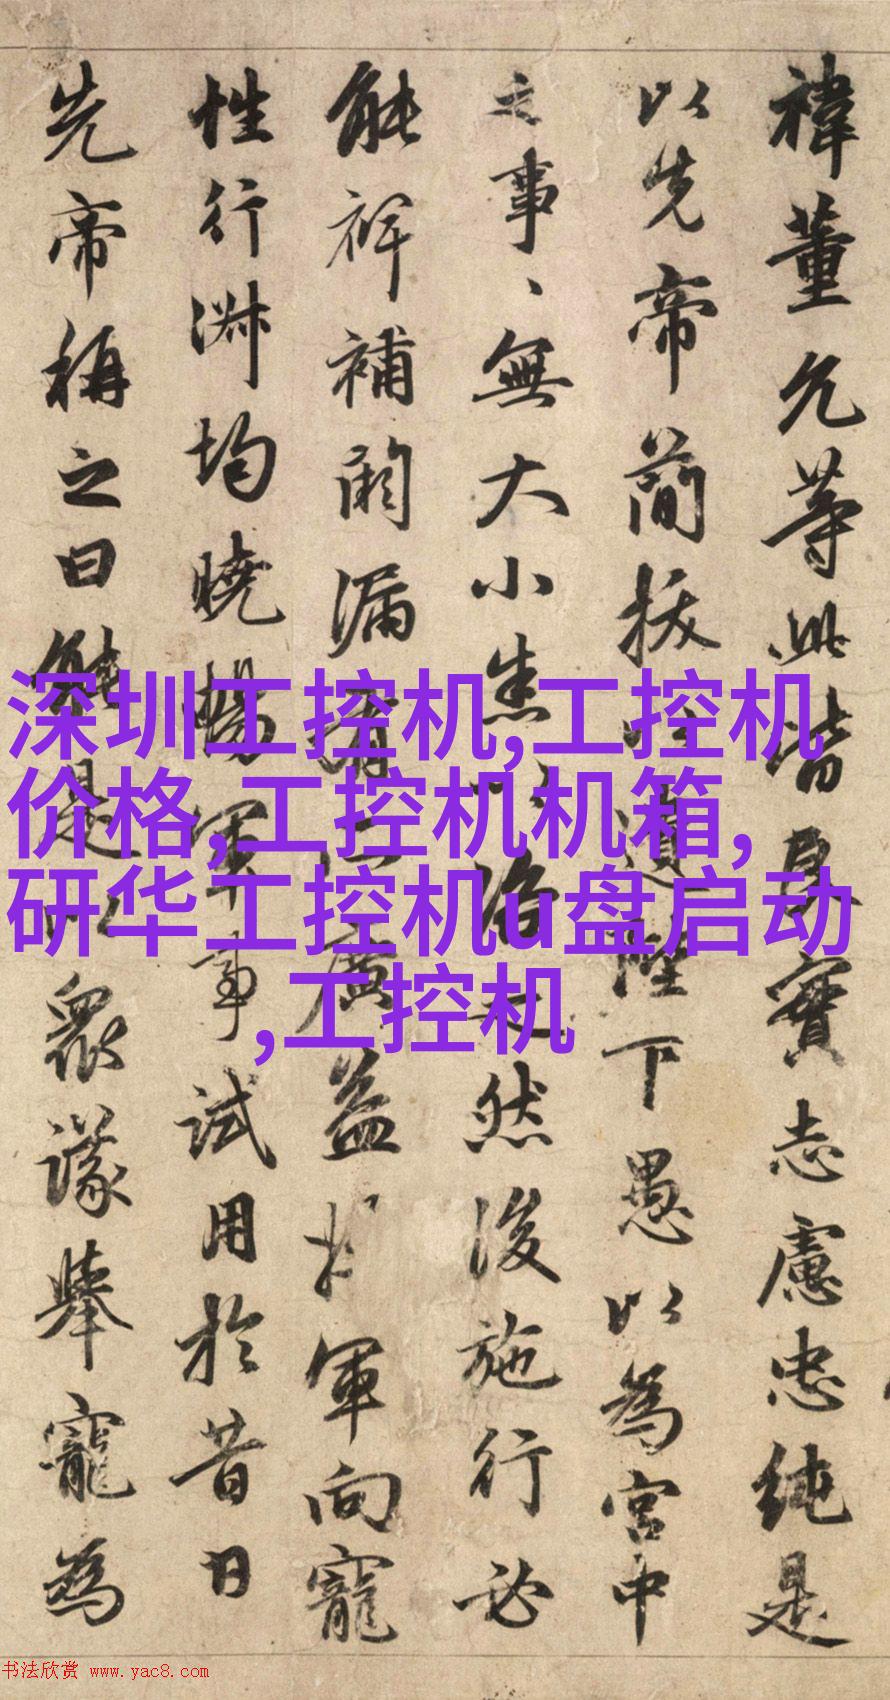 禕董允等此皆良實志慮忠純是
以先帝簡拔以遺陛下愚以為宮中
之事、無大小悉以咨之然後施行必
能裨補闕漏有所廣益將軍向寵
性行淑均曉暢軍事試用於昔日
先帝稱之曰能是以眾議舉寵為
深圳工控机,工控机
价格,工控机机箱,
研华工控机u盘启动
,工控机
书法欣赏 www.yac8.com